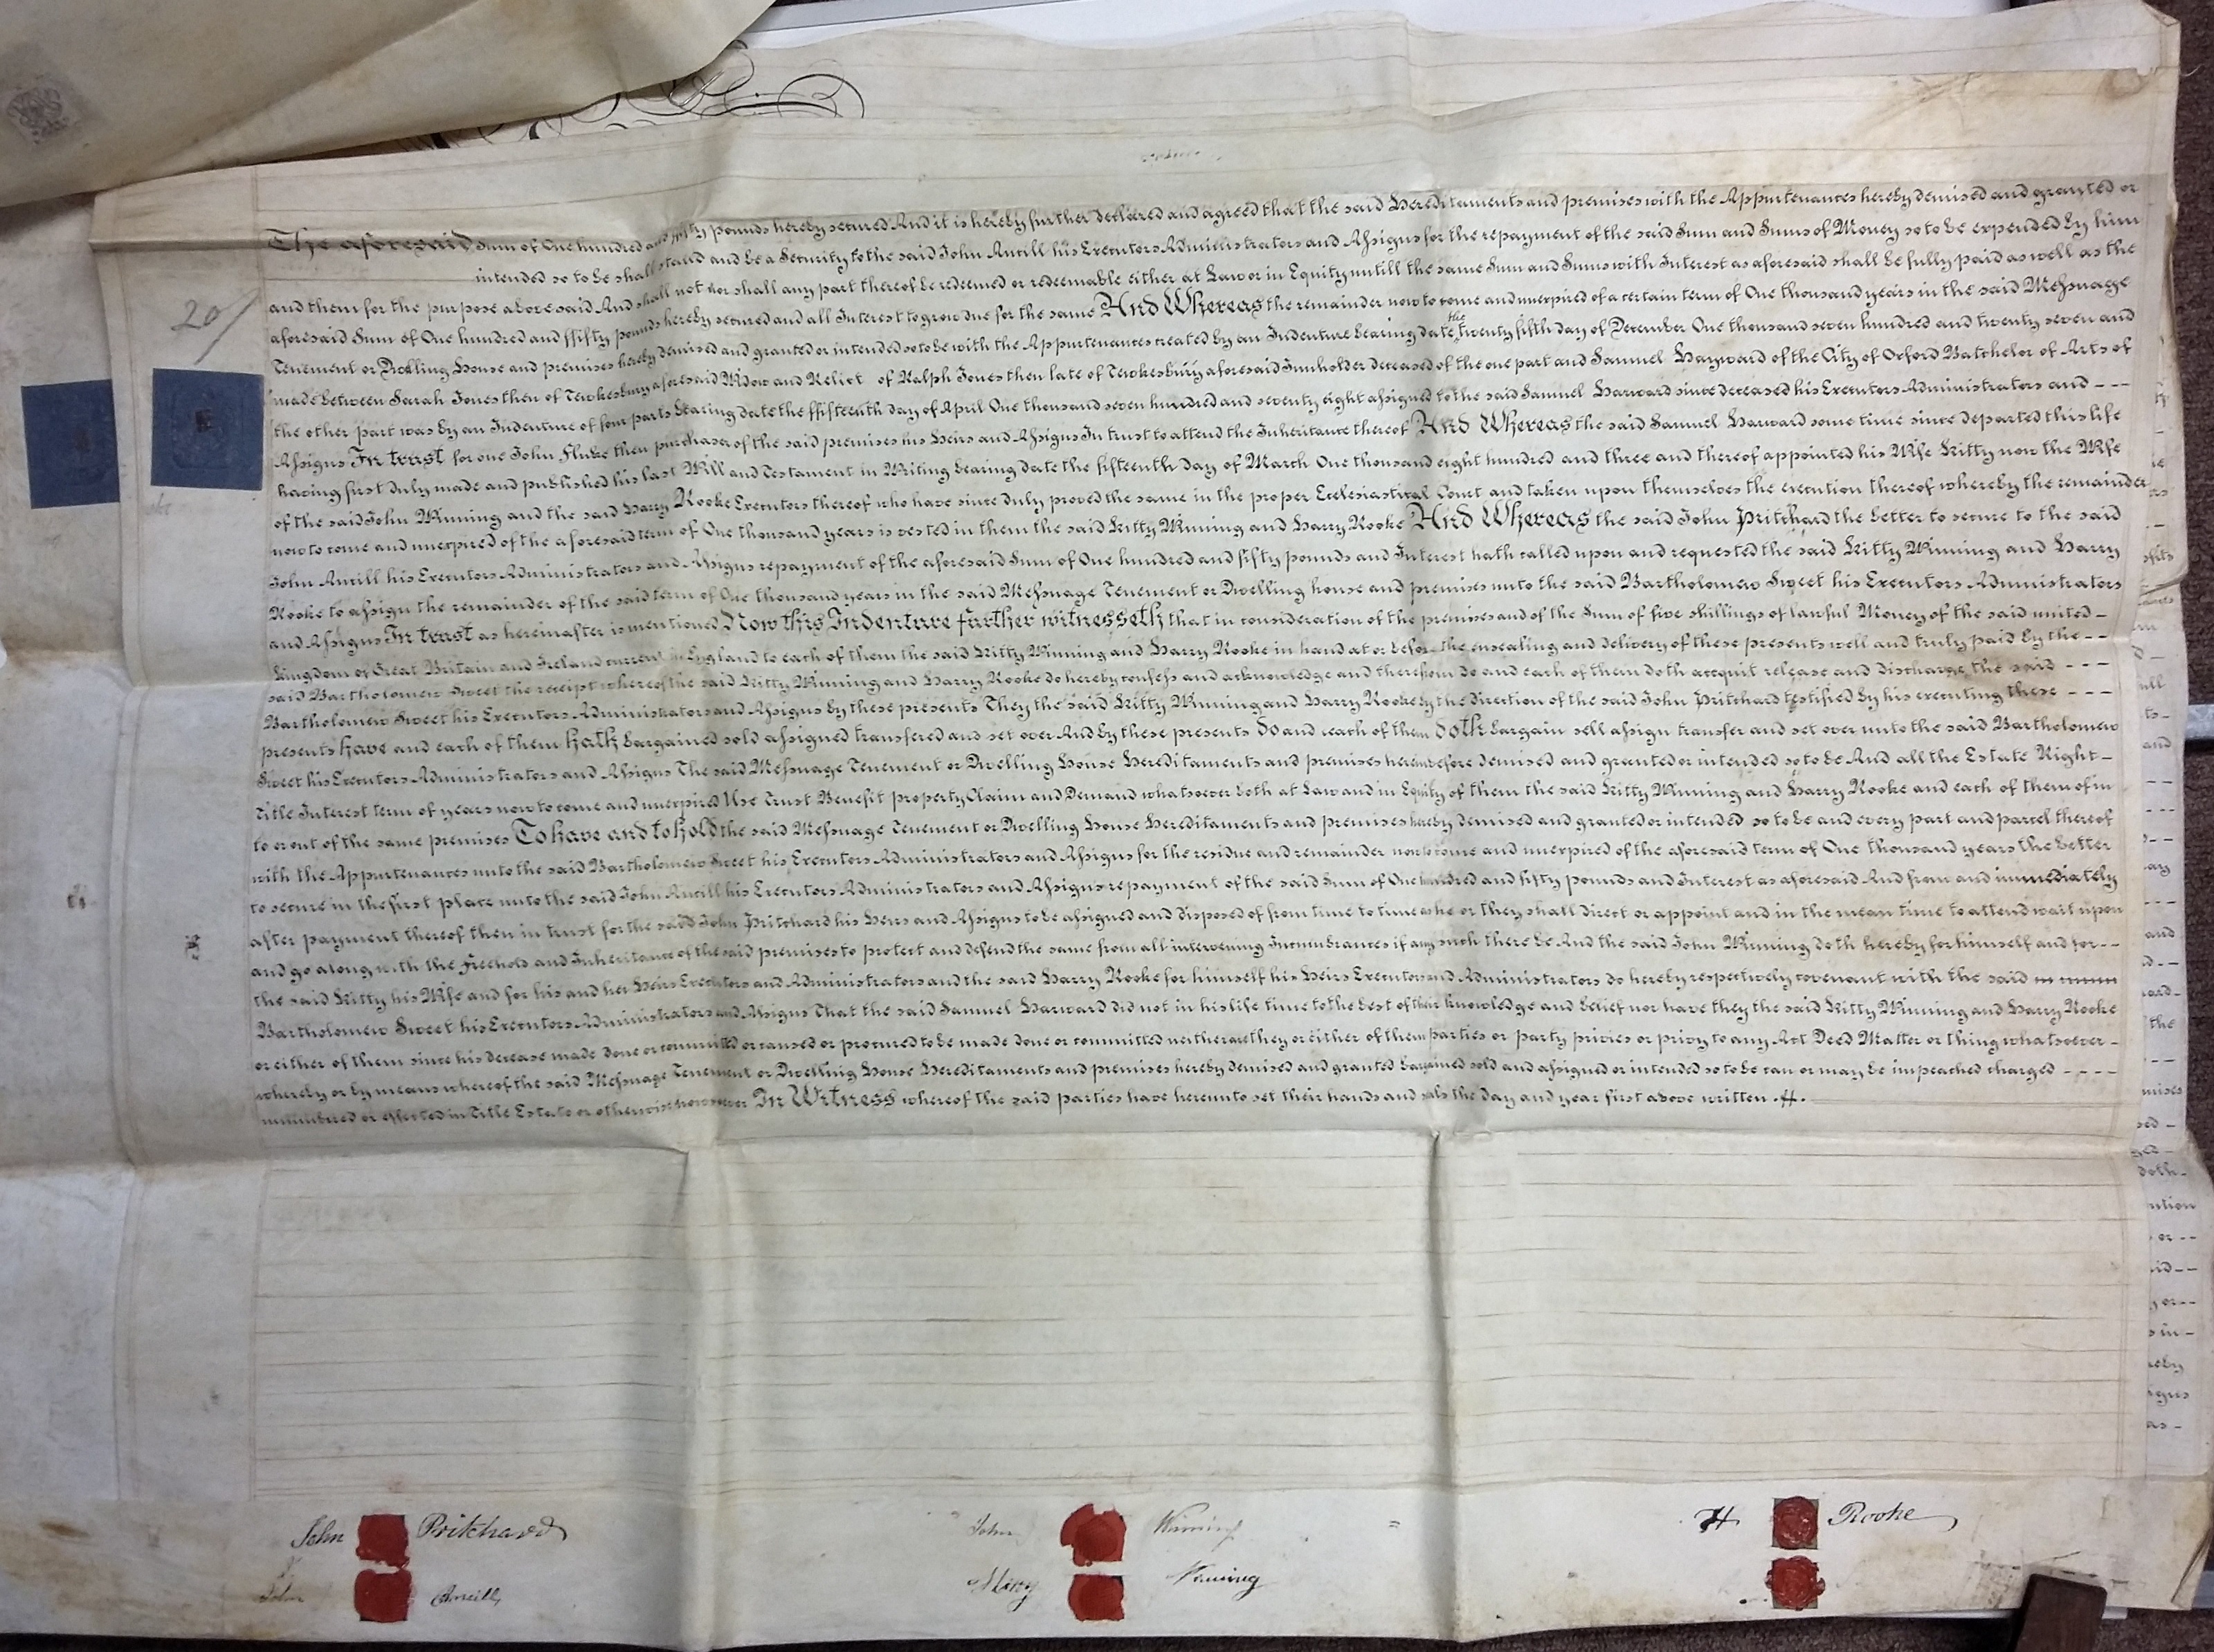 The aforesaid Sum of One hundred and fifty pounds hereby secured And it is hereby further declared and agreed that the said Hereditaments and premises with the Appurtenances hereby demised and granted or
intended so to be shall stand and be a Security to the said John Antill his Executors Administrators and Assigns for the repayment of the said Sum and Sums of Money so to be expended by him
20/
and them for the purpose abovesaid And shall not nor shall any part thereof be redeemed or redeemable either at Law or in Equity untill the same Sum and Sums with Interest as aforesaid shall be fully paid as well as the
aforesaid Sum of One hundred and ffifty pounds hereby secured and all Interest to grow due for the same And Whereas the remainder now to come and unexpired of a certain term of One thousand years in the said Messuage
Tenement or Dwelling House and premises hereby demised and granted or intended so to be with the Appurtenances created by an Indenture bearing date the twenty fifth day of December One thousand seven hundred and twenty seven and
made between Sarah Jones then of Tewkesbury aforesaid Widow and Relict of Ralph Jones then late of Tewkesbury aforesaid Innholder deceased of the one part and Samuel Hayward of the City of Oxford Batchelor of Arts of
the other part was by an Indenture of four parts bearing date the ffifteenth day of April One thousand seven hundred and seventy eight assigned to the said Samuel Harward since deceased his Executors Administrators and - - -
Assigns In trust for one John Fluke then purchaser of the said premises his Heirs and Assigns In trust to attend the Inheritance thereof And Whereas the said Samuel Harward some time since departed this life
having first duly made and published his last Will and Testament in Writing bearing date the fifteenth day of March One thousand eight hundred and three and thereof appointed his Wife Kitty now the Wife
of the said John Winning and the said Harry Rooke Executors thereof who have since duly proved the same in the proper Ecclesiastical Court and taken upon themselves the execution thereof whereby the remainder
now to come and unexpired of the aforesaid term of One thousand years is vested in them the said Kitty Winning and Harry Rooke And Whereas the said John Pritchard the better to secure to the said
John Antill his Executors Administrators and Assigns repayment of the aforesaid Sum of One hundred and fifty pounds and Interest hath called upon and requested the said Kitty Winning and Harry
Rooke to assign the remainder of the said term of One thousand years in the said Messuage Tenement or Dwelling house and premises unto the said Bartholomew Sweet his Executors Administrators
and Assigns In trust as hereinafter is mentioned Now this Indenture further witnesseth that in consideration of the premises and of the Sum of five shillings of lawful Money of the said united -
Kingdom of Great Britain and Ireland current in England to each of them the said Kitty Winning and Harry Rooke in hand at or before the ensealing and delivery of these presents well and truly paid by the - -
said Bartholomew Sweet the receipt whereof the said Kitty Winning and Harry Rooke do hereby confess and acknowledge and therefrom do and each of them doth acquit release and discharge the said - - -
Bartholomew Sweet his Executors Administrators and Assigns by these presents They the said Kitty Winning and Harry Rooke by the direction of the said John Pritchard testified by his executing these - - -
presents have and each of them hath bargained sold assigned transfered and set over And by these presents Do and each of them Doth bargain sell assign transfer and set over unto the said Bartholomew
Sweet his Executors Administrators and Assigns The said Messuage Tenement or Dwelling House Hereditaments and premises hereinbefore demised and granted or intended so to be And all the Estate Right -
Title Interest term of years now to come and unexpired Use Trust Benefit property Claim and Demand whatsoever both at Law and in Equity of them the said Kitty Winning and Harry Rooke and each of them of in
to or out of the same premises To have and to hold the said Messuage Tenement or Dwelling House Hereditaments and premises hereby demised and granted or intended so to be and every part and parcel thereof
with the Appurtenances unto the said Bartholomew Sweet his Executors Administrators and Assigns for the residue and remainder now to come and unexpired of the aforesaid term of One thousand years the better
to secure in the first place unto the said John Antill his Executors Administrators and Assigns repayment of the said Sum of One hundred and fifty pounds and Interest as aforesaid And from and immediately
after payment thereof then in trust for the said John Pritchard his Heirs and Assigns to be assigned and disposed of from time to time as he or they shall direct or appoint and in the mean time to attend wait upon
and go along with the Freehold and Inheritance of the said premises to protect and defend the same from all intervening Incumbrances if any such there be And the said John Winning doth hereby for himself and for - -
the said Kitty his Wife and for his and her Heirs Executors and Administrators and the said Harry Rooke for himself his Heirs Executors and Administrators do hereby respectively covenant with the said
Bartholomew Sweet his Executors Administrators and Assigns That the said Samuel Harward did not in his life time to the best of their knowledge and belief nor have they the said Kitty Winning and Harry Rooke
or either of them since his decease made done or committed or caused or procured to be made done or committed neither are they or either of them parties or party privies or privy to any Act Deed Matter or thing whatsoever -
whereby or by means whereof the said Messuage Tenement or Dwelling House Hereditaments and premises hereby demised and granted bargained sold and assigned or intended so to be can or may be impeached charged - - - -
incumbered or affected in Title Estate or otherwise howsoever In Witness whereof the said parties have hereunto set their hands and seals the day and year first above written
John Pritchard
John Winning
H Rooke
John Antill
Winning